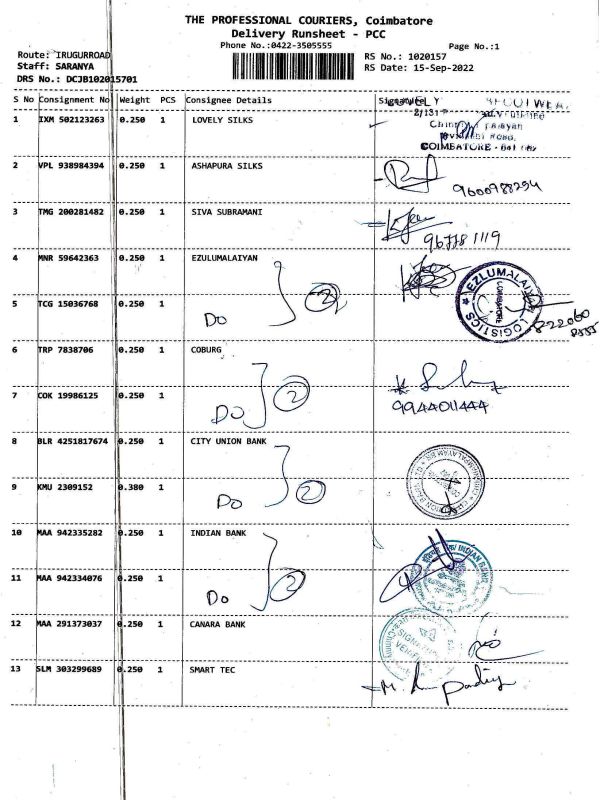 THE PROFESSIONAL COURIERS, Coimbatore
Delivery Runsheet - PCC
Phone No.:0422-3505555
Page No.:1
Route: IRUGURROAD
Staff: SARANYA
DRS No.: DCJB102015701
RS No.: 1020157
RS Date: 15-Sep-2022
S No Consignment No Weight PCS Consignee Details Signature
1 IXM 502123263 0.250 1 LOVELY SILKS
COIMBATORE
2 VPL 938984394 0.250 1 ASHAPURA SILKS
9600988294
3 TMG 200281482 0.250 1 SIVA SUBRAMANI
4 MNR 59642363 0.250 1 EZULUMALAIYAN
EZLUMALAIYAN LOGISTICS
COIMBATORE
Do 2
5 TCG 15036768 0.250 1
6 TRP 7838706 0.250 1 COBURG
Do 2
7 COK 19986125 0.250 1
9944011444
8 BLR 4251817674 0.250 1 CITY UNION BANK
Do 2
9 KMU 2309152 0.380 1
10 MAA 942335282 0.250 1 INDIAN BANK
INDIAN BANK
Do 2
11 MAA 942334076 0.250 1
12 MAA 291373037 0.250 1 CANARA BANK
13 SLM 303299689 0.250 1 SMART TEC